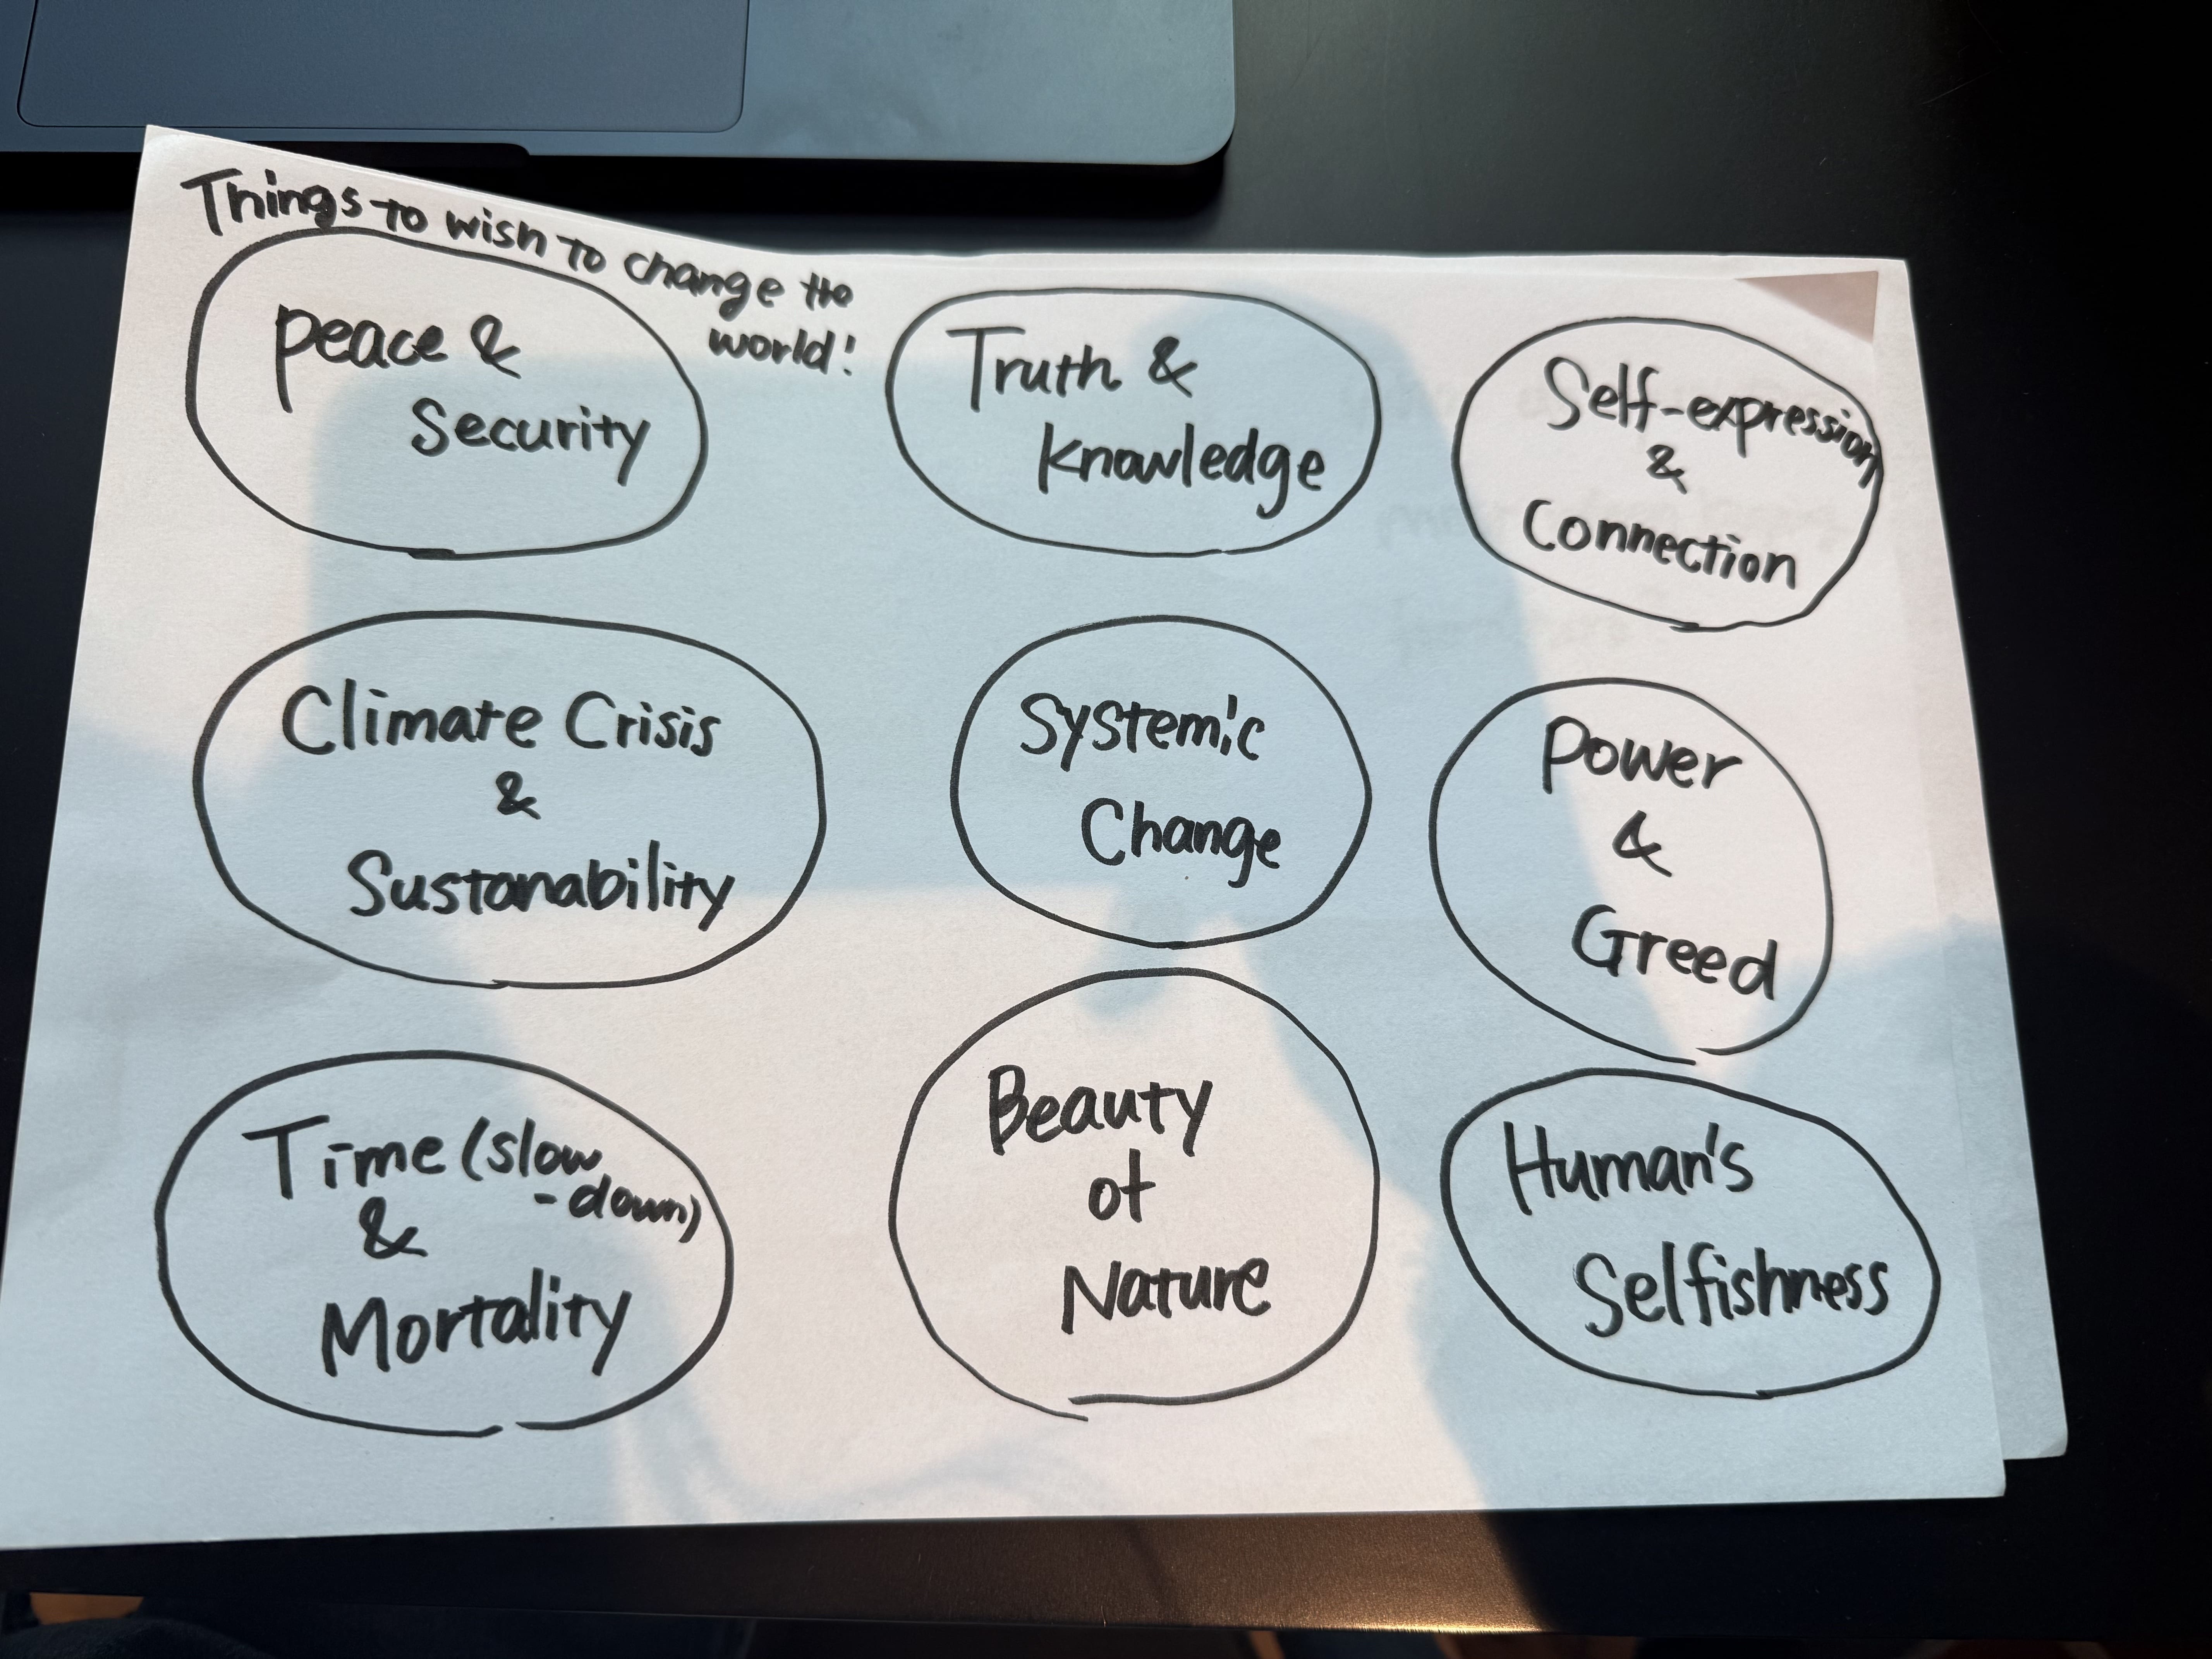 Things to wish to change the
world!
Peace &
Security
Truth &
Knowledge
Self-expression
&
Connection
Climate Crisis
&
Sustanability
Systemic
Change
Power
&
Greed
Time (slow
-down)
&
Mortality
Beauty
of
Nature
Human's
Selfishness